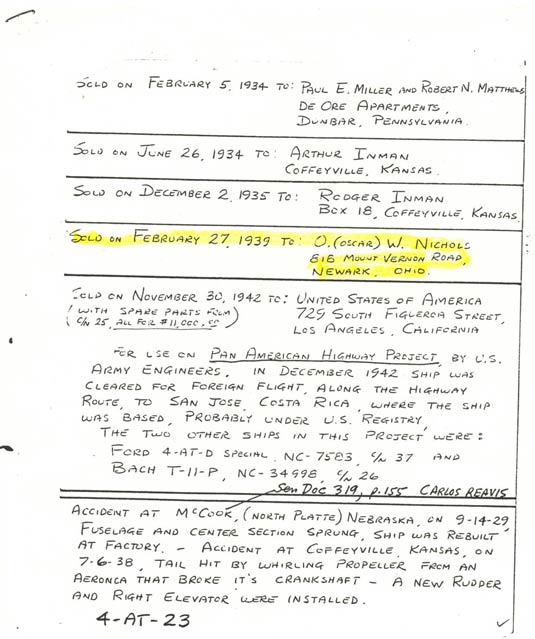 SOLD ON FEBRUARY 5, 1934 TO: PAUL E. MILLER AND ROBERT N. MATTHEWS
DE ORE APARTMENTS,
DUNBAR, PENNSYLVANIA.
SOLD ON JUNE 26, 1934 TO: ARTHUR INMAN
COFFEYVILLE, KANSAS.
SOLD ON DECEMBER 2, 1935 TO: RODGER INMAN
BOX 18, COFFEYVILLE, KANSAS.
SOLD ON FEBRUARY 27, 1939 TO: O. (OSCAR) W. NICHOLS
816 MOUNT VERNON ROAD,
NEWARK, OHIO.
SOLD ON NOVEMBER 30, 1942 TO: UNITED STATES OF AMERICA
(WITH SPARE PARTS FROM 729 SOUTH FIGUEROA STREET,
C/N 25, ALL FOR $11,000.00) LOS ANGELES, CALIFORNIA
FOR USE ON PAN AMERICAN HIGHWAY PROJECT, BY U.S.
ARMY ENGINEERS. IN DECEMBER 1942 SHIP WAS
CLEARED FOR FOREIGN FLIGHT, ALONG THE HIGHWAY
ROUTE, TO SAN JOSE, COSTA RICA, WHERE THE SHIP
WAS BASED, PROBABLY UNDER U.S. REGISTRY.
THE TWO OTHER SHIPS IN THIS PROJECT WERE:
FORD 4-AT-D SPECIAL, NC-7583, C/N 37 AND
BACH T-11-P, NC-34998, C/N 26
Sen Doc 319, p.155 CARLOS REAVIS
ACCIDENT AT MCCOOK, (NORTH PLATTE) NEBRASKA, ON 9-14-29,
FUSELAGE AND CENTER SECTION SPRUNG, SHIP WAS REBUILT
AT FACTORY. - ACCIDENT AT COFFEYVILLE, KANSAS, ON
7-6-38, TAIL HIT BY WHIRLING PROPELLER FROM AN
AERONCA THAT BROKE IT'S CRANKSHAFT - A NEW RUDDER
AND RIGHT ELEVATOR WERE INSTALLED.
4-AT-23